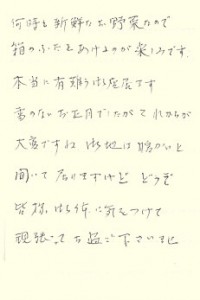 何時も新鮮なお野菜なので
箱のふたをあけるのが楽しみです。
本当に有難う御座居ます
雪のないお正月でしたがこれからが
大変ですね 御地は暖かいと
聞いて居りますけど どうぞ
皆様 お身体に気をつけて
頑張ってお過ご下さいませ